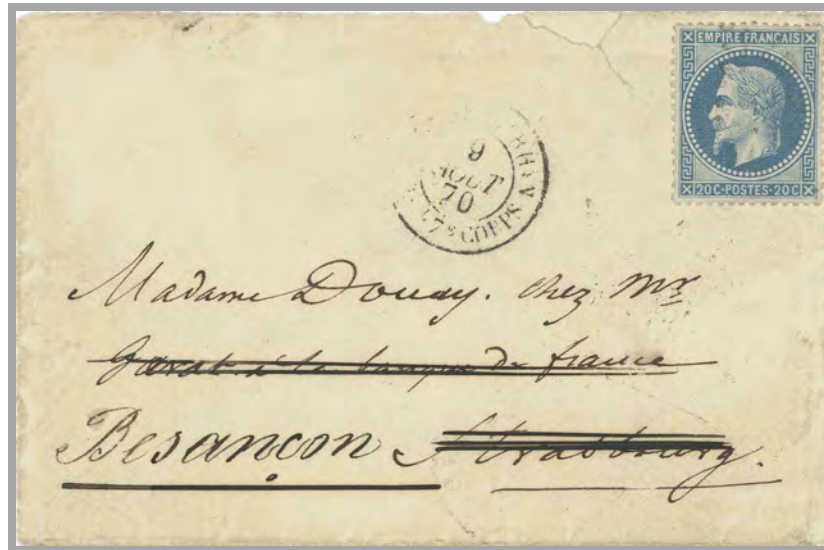 EMPIRE FRANCAIS
20C-POSTES-20C
9
AOUT
70
7e CORPS
Madame Douay. chez Mr
Garat à la banque de france
Besançon Strasbourg.